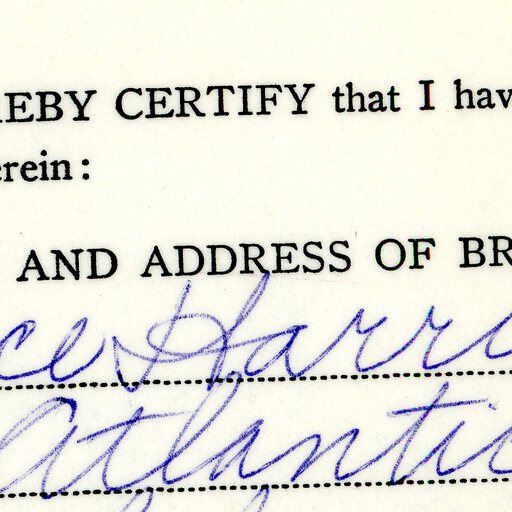 REBY CERTIFY that I hav
erein:
AND ADDRESS OF BR
ce Harri
Atlantic